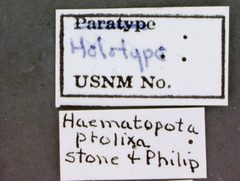 Paratype
Holotype
USNM No.
Haematopota
prolixa
Stone & Philip